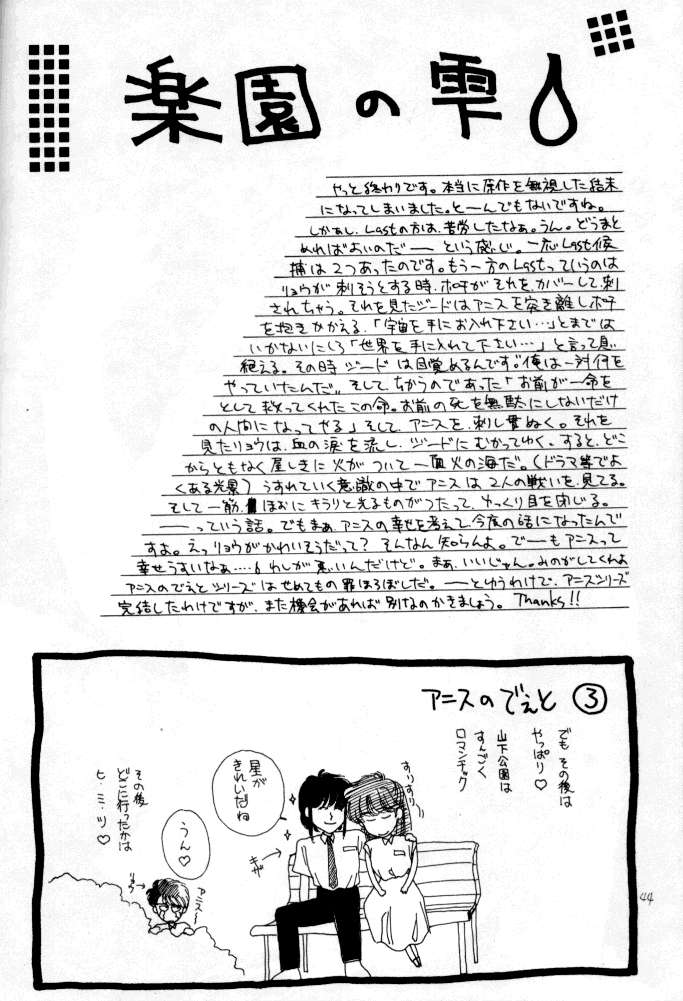 楽園の雫
やっと終わりです。本当に原作を無視した結末
になってしまいました。と―んでもないですね。
しかぁし、Lastの方は、苦労したなぁ。うん。どうまと
めればよいのだ―― という感じ。一応Last候
補は2つあったのです。もう一方のLastっていうのは
リョウが刺そうとする時、ポチがそれをカバーして、刺
されちゃう。それを見たジードはアニスを突き離しポチ
を抱きかかえる。「宇宙を手にお入れ下さい…」とまでは
いかないにしろ「世界を手に入れて下さい…」と言って息
絶える。その時ジードは目覚めるんです。"俺は一対何を
やっていたんだ〟そして、ちかうのであった「お前が一命を
として救ってくれたこの命。お前の死を無駄にしないだけ
の人間になってやる」そして、アニスを、刺し貫ぬく。それを
見たリョウは、血の涙を流し、ジードにむかってゆく。すると、どこ
からともなく屋しきに火がついて一面火の海だ。(ドラマ等でよ
くある光景)うすれていく意識の中でアニスは2人の戦いを見てる。
そして一筋、ほおにキラリと光るものがつたって、ゆっくり目を閉じる。
――っていう話。でもまぁ、アニスの幸せを考えて、今度の話になったんで
すよ。えっリョウがかわいそうだって？そんなん知らんよ。で―もアニスって
幸せうすいなぁ……わしが悪いんだけど。まぁ、いいじゃん。みのがしてくれよ
アニスのでえとシリーズはせめてもの罪ほろぼしだ。――とゆうわけで、アニスシリーズ
完結したわけですが、また機会があれば別なのかきましょう。Thanks!!
アニスのでぇと ③
でも その後は
やっぱり♡
山下公園は
すんごく
ロマンチック
すりすり
星が
きれいだね
キザ
うん♡
アニス〜
リョウ
その後
どこに行ったかは
ヒ・ミ・ツ♡
44